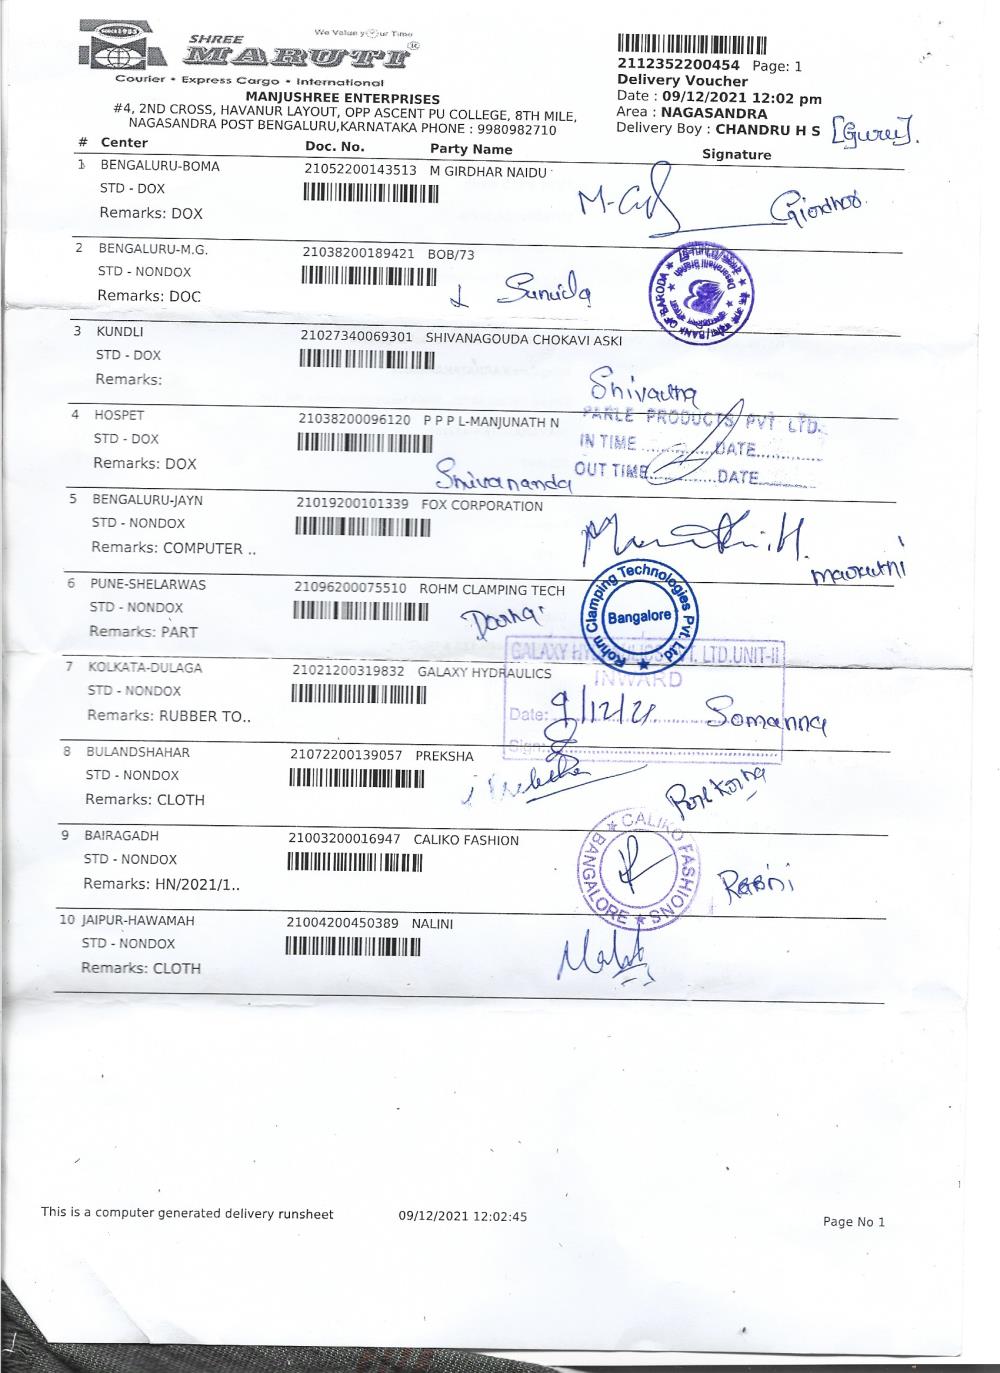 SINCE 1985
We Value your Time
SHREE
MARUTI ®
Courier • Express Cargo • International
MANJUSHREE ENTERPRISES
#4, 2ND CROSS, HAVANUR LAYOUT, OPP ASCENT PU COLLEGE, 8TH MILE,
NAGASANDRA POST BENGALURU,KARNATAKA PHONE : 9980982710
2112352200454 Page: 1
Delivery Voucher
Date : 09/12/2021 12:02 pm
Area : NAGASANDRA
Delivery Boy : CHANDRU H S [Guru].
# Center Doc. No. Party Name Signature
1 BENGALURU-BOMA 21052200143513 M GIRDHAR NAIDU
STD - DOX
Remarks: DOX
2 BENGALURU-M.G. 21038200189421 BOB/73
STD - NONDOX
Remarks: DOC
BANK OF BARODA
3 KUNDLI 21027340069301 SHIVANAGOUDA CHOKAVI ASKI
STD - DOX
Remarks:
4 HOSPET 21038200096120 P P P L-MANJUNATH N
STD - DOX
Remarks: DOX
Shivananda
PARLE PRODUCTS PVT LTD.
IN TIME ............DATE............
OUT TIME............DATE............
5 BENGALURU-JAYN 21019200101339 FOX CORPORATION
STD - NONDOX
Remarks: COMPUTER ..
6 PUNE-SHELARWAS 21096200075510 ROHM CLAMPING TECH
STD - NONDOX
Remarks: PART
Rohm Clamping Technologies Pvt. Ltd.
Bangalore
7 KOLKATA-DULAGA 21021200319832 GALAXY HYDRAULICS
STD - NONDOX
Remarks: RUBBER TO..
GALAXY HYDRAULICS PVT. LTD.UNIT-II
INWARD
Date: 9/12/21
Sign:
Somanna
8 BULANDSHAHAR 21072200139057 PREKSHA
STD - NONDOX
Remarks: CLOTH
9 BAIRAGADH 21003200016947 CALIKO FASHION
STD - NONDOX
Remarks: HN/2021/1..
CALIKO FASHIONS
BANGALORE
10 JAIPUR-HAWAMAH 21004200450389 NALINI
STD - NONDOX
Remarks: CLOTH
This is a computer generated delivery runsheet 09/12/2021 12:02:45 Page No 1